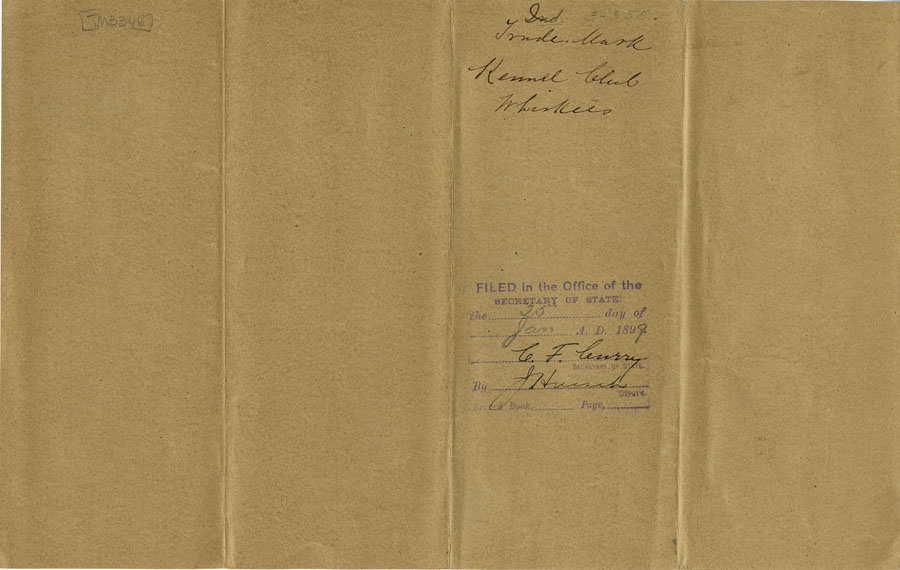 [TM3346]
2nd
Trade-Mark
Kennel Club
Whiskies
FILED in the Office of the
SECRETARY OF STATE.
the 25 day of
Jan A. D. 1899.
C. F. Curry
SECRETARY OF STATE.
By
DEPUTY.
Book, Page,